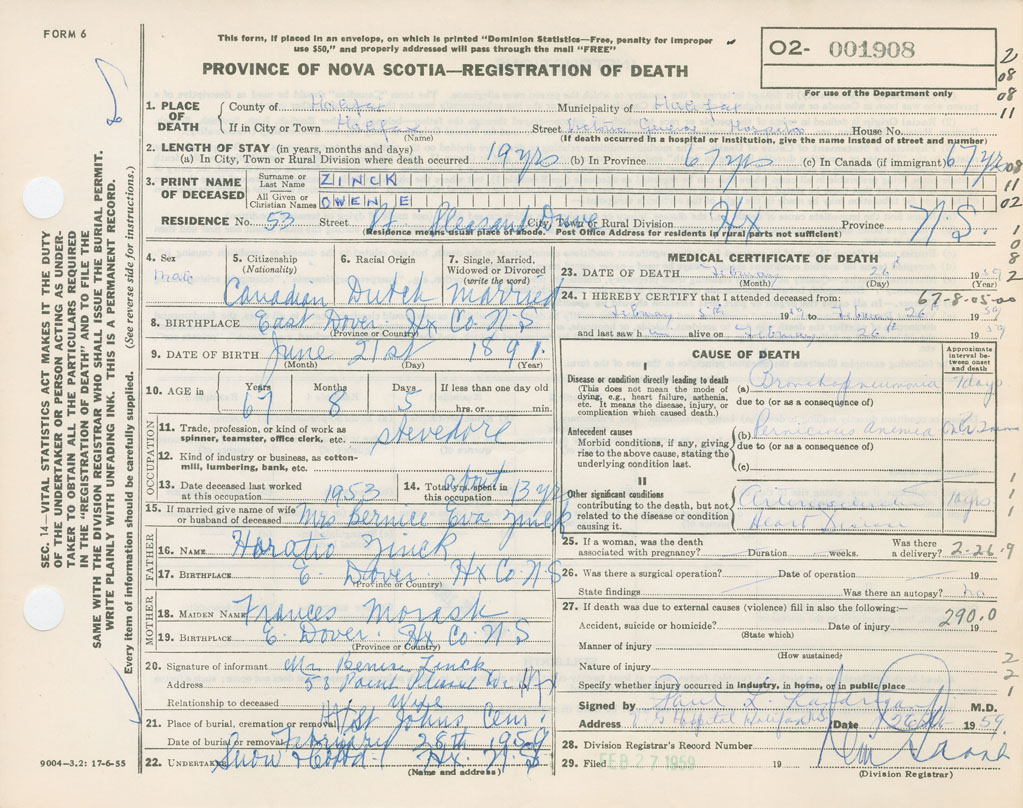 FORM 6
This form, if placed in an envelope, on which is printed "Dominion Statistics—Free, penalty for improper
use $50," and properly addressed will pass through the mail "FREE"
PROVINCE OF NOVA SCOTIA—REGISTRATION OF DEATH
02- 001908
For use of the Department only
2
08
08
11
1. PLACE OF DEATH
County of Halifax Municipality of Halifax
If in City or Town Halifax Street Victoria General Hospital House No.
(Name) (If death occurred in a hospital or institution, give the name instead of street and number)
2. LENGTH OF STAY (in years, months and days)
(a) In City, Town or Rural Division where death occurred 19 yrs (b) In Province 67 yrs (c) In Canada (if immigrant) 67 yrs
08
11
02
3. PRINT NAME OF DECEASED
Surname or Last Name ZINCK
All Given or Christian Names OWEN E
RESIDENCE No. 53 Street Pt. Pleasant Drive City, Town or Rural Division Hx Province N.S.
(Residence means usual place of abode. Post Office Address for residents in rural parts not sufficient)
1
0
8
2
4. Sex Male
5. Citizenship (Nationality) Canadian
6. Racial Origin Dutch
7. Single, Married, Widowed or Divorced (write the word) Married
8. BIRTHPLACE East Dover Hx Co. N.S
(Province or Country)
9. DATE OF BIRTH June 21st 1891
(Month) (Day) (Year)
10. AGE in Years 67 Months 8 Days 5 If less than one day old hrs. or min.
OCCUPATION
11. Trade, profession, or kind of work as spinner, teamster, office clerk, etc. stevedore
12. Kind of industry or business, as cotton-mill, lumbering, bank, etc.
13. Date deceased last worked at this occupation 1953
14. Total yrs. spent in this occupation about 13 yrs
15. If married give name of wife or husband of deceased Mrs Bernice Eva Zinck
FATHER
16. NAME Horatio Zinck
17. BIRTHPLACE E. Dover Hx Co. N.S
(Province or Country)
MOTHER
18. MAIDEN NAME Frances Morash
19. BIRTHPLACE E. Dover. Hx Co. N.S
(Province or Country)
20. Signature of informant Mrs Bernice Zinck
Address 53 Point Pleasant Dr. Hfx
Relationship to deceased Wife
21. Place of burial, cremation or removal St Johns Cem.
Date of burial or removal February 28th 1959
22. UNDERTAKER Snow Hx. N.S.
(Name and address)
MEDICAL CERTIFICATE OF DEATH
23. DATE OF DEATH February 26th 1959
(Month) (Day) (Year)
24. I HEREBY CERTIFY that I attended deceased from: 67-8-05-00
February 5th 1959 to February 26th 1959
and last saw him alive on February 26th 1959
CAUSE OF DEATH
Approximate interval between onset and death
I
Disease or condition directly leading to death
(This does not mean the mode of dying, e.g., heart failure, asthenia, etc. It means the disease, injury, or complication which caused death.)
(a) Bronchopneumonia 7 days
due to (or as a consequence of)
Antecedent causes
Morbid conditions, if any, giving rise to the above cause, stating the underlying condition last.
(b) Pernicious Anemia
due to (or as a consequence of)
(c)
II
Other significant conditions
contributing to the death, but not related to the disease or condition causing it.
Arteriosclerotic 10 yrs
Heart Disease
1
1
1
1
25. If a woman, was the death associated with pregnancy? Duration weeks. Was there a delivery? 2-26-9
26. Was there a surgical operation? Date of operation 19
State findings Was there an autopsy? no
27. If death was due to external causes (violence) fill in also the following:—
290.0
Accident, suicide or homicide? Date of injury 19
(State which)
Manner of injury
(How sustained)
Nature of injury
Specify whether injury occurred in industry, in home, or in public place
2
2
1
Signed by M.D.
Address V G Hospital Halifax NS Date 26 Feb 1959.
28. Division Registrar's Record Number
29. Filed FEB 27 1959 19
(Division Registrar)
SEC. 14—VITAL STATISTICS ACT MAKES IT THE DUTY
OF THE UNDERTAKER OR PERSON ACTING AS UNDER-
TAKER TO OBTAIN ALL THE PARTICULARS REQUIRED
IN THE "REGISTRATION OF DEATH" AND TO FILE THE
SAME WITH THE DIVISION REGISTRAR WHO SHALL ISSUE THE BURIAL PERMIT.
WRITE PLAINLY WITH UNFADING INK. THIS IS A PERMANENT RECORD.
Every item of information should be carefully supplied. (See reverse side for instructions.)
9004—3.2: 17-6-55